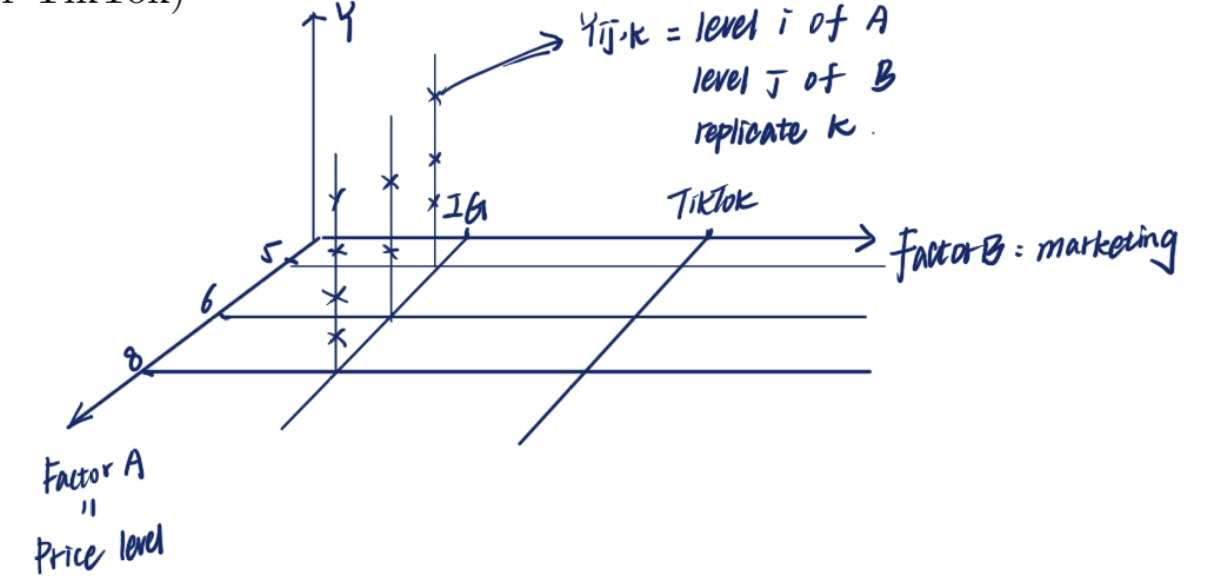 Y
Yij.k = level i of A
level j of B
replicate k.
IG
TikTok
5
Factor B : marketing
6
8
Factor A
=
Price level